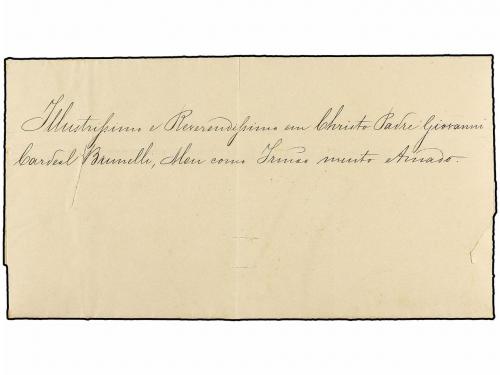 Illustrissimo e Reverendissimo em Christo Padre Giovanni
Cardeal Brunelli, Meu como Irmao muito Amado.